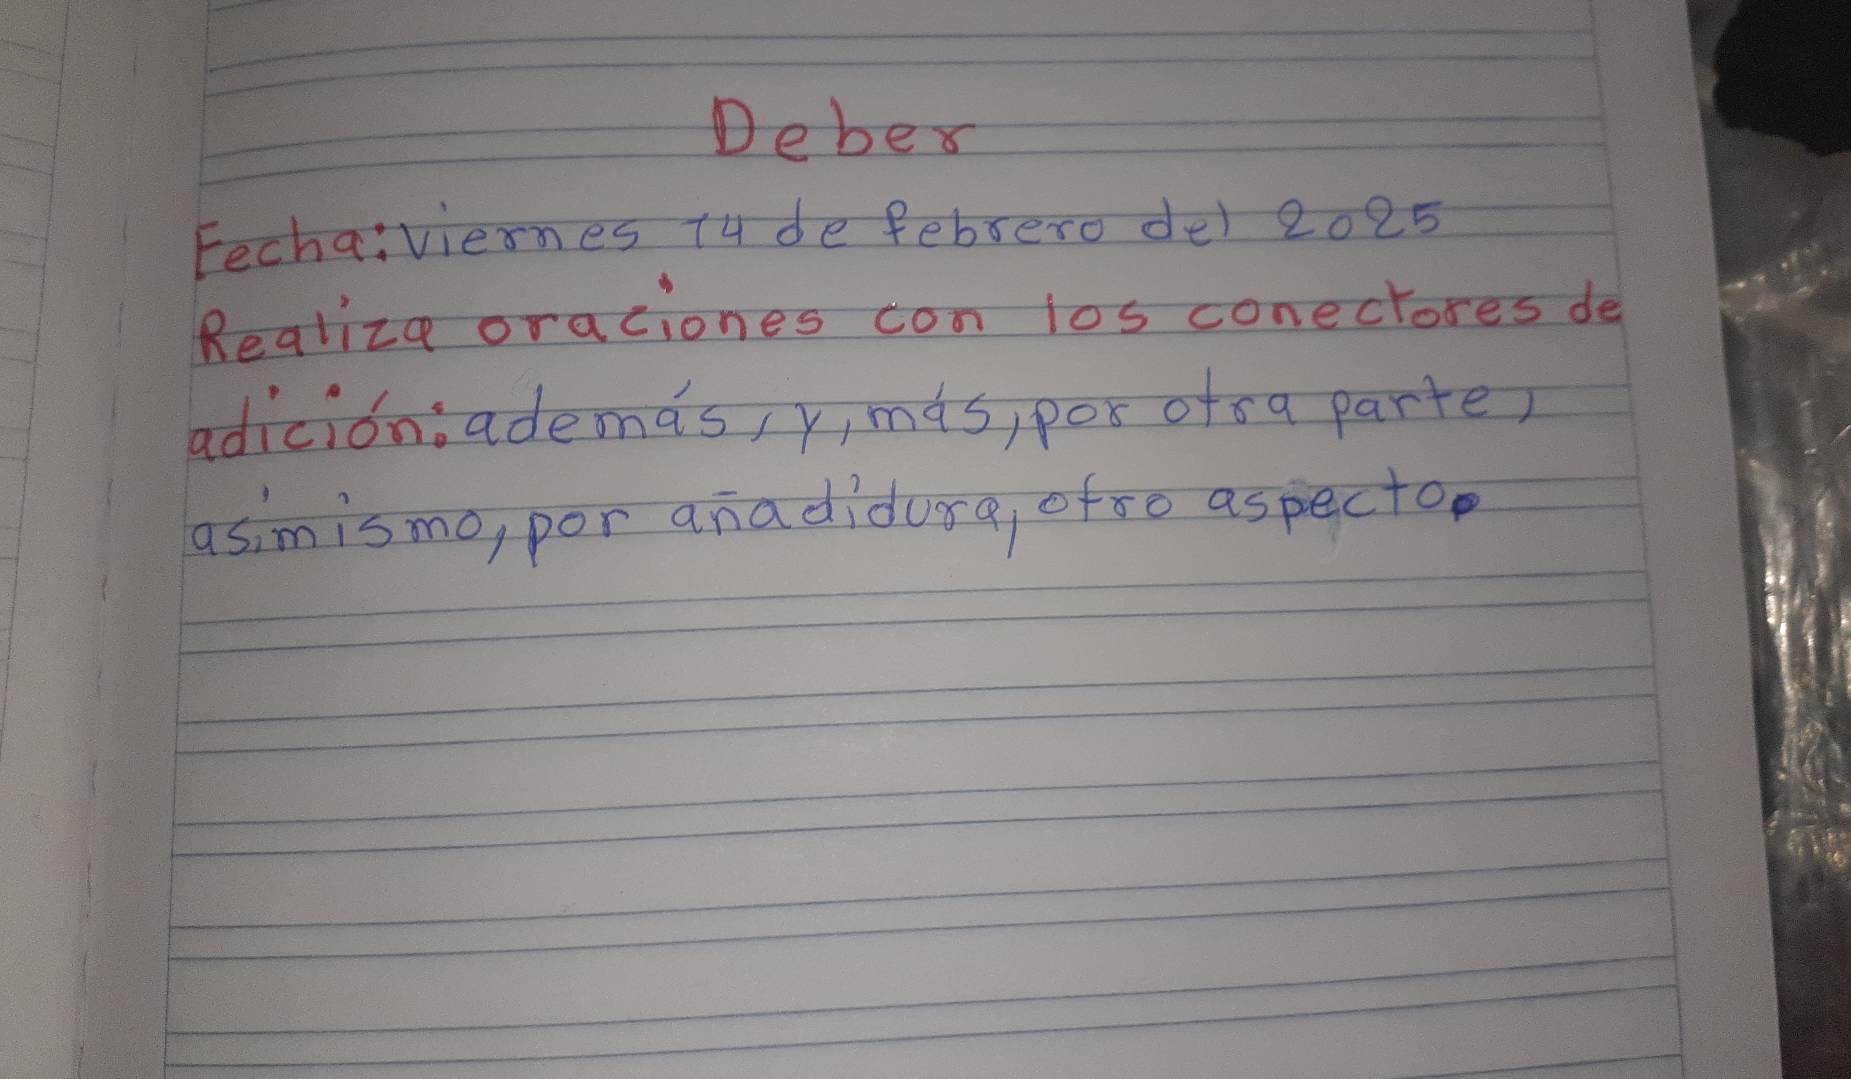 Deber
Fecha: viernes 14 de febrero del 2025
Realiza oraciones con los conectores de
adición: además, y, más, por otra parte,
asimismo, por añadidura, otro aspecto.